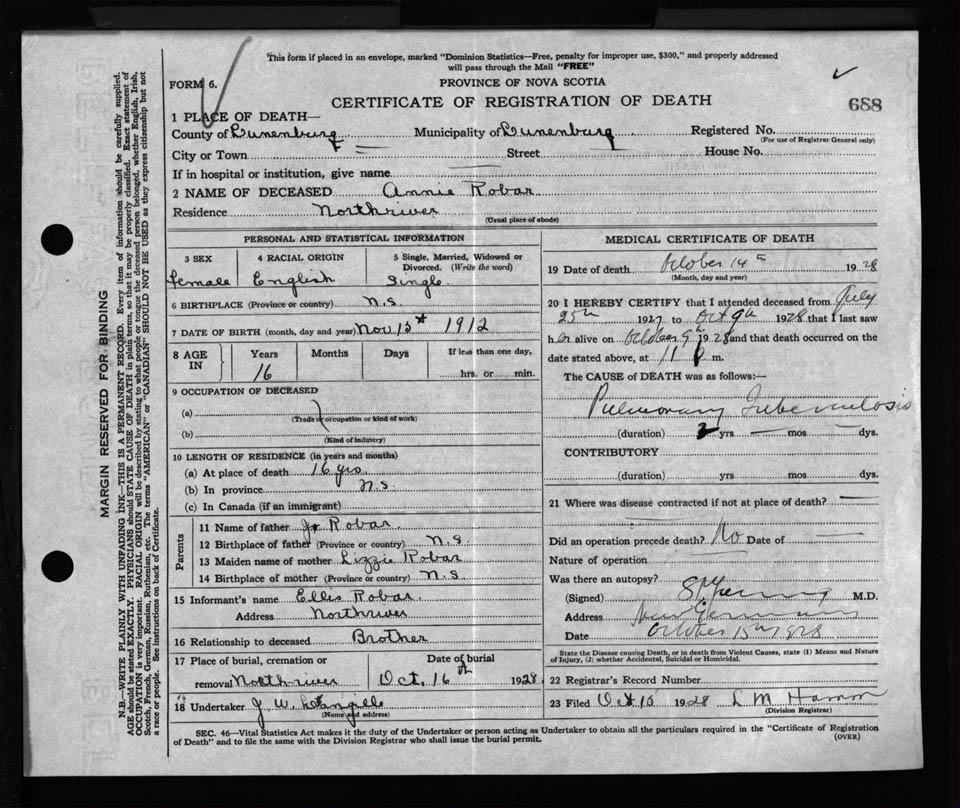 This form if placed in an envelope, marked "Dominion Statistics—Free, penalty for improper use, $300," and properly addressed
will pass through the Mail "FREE"
FORM 6.
PROVINCE OF NOVA SCOTIA
CERTIFICATE OF REGISTRATION OF DEATH
688
1 PLACE OF DEATH—
County of Lunenburg Municipality of Lunenburg Registered No.
(For use of Registrar General only)
City or Town Street House No.
If in hospital or institution, give name
2 NAME OF DECEASED Annie Robar
Residence Northriver
(Usual place of abode)
PERSONAL AND STATISTICAL INFORMATION
3 SEX 4 RACIAL ORIGIN 5 Single, Married, Widowed or
Divorced. (Write the word)
Female English Single
6 BIRTHPLACE (Province or country) N.S.
7 DATE OF BIRTH (month, day and year) Nov 15th 1912
8 AGE IN Years Months Days If less than one day,
16 hrs. or min.
9 OCCUPATION OF DECEASED
(a)
(Trade or occupation or kind of work)
(b)
(Kind of industry)
10 LENGTH OF RESIDENCE (in years and months)
(a) At place of death 16 yrs
(b) In province N.S.
(c) In Canada (if an immigrant)
Parents
11 Name of father Robar
12 Birthplace of father (Province or country) N.S.
13 Maiden name of mother Lizzie Robar
14 Birthplace of mother (Province or country) N.S.
15 Informant's name Ellis Robar
Address Northriver
16 Relationship to deceased Brother
17 Place of burial, cremation or Date of burial
removal Northriver Oct. 16th 1928
18 Undertaker J. W.
(Name and address)
MEDICAL CERTIFICATE OF DEATH
19 Date of death October 14th 1928
(Month, day and year)
20 I HEREBY CERTIFY that I attended deceased from July
25th 1927 to Oct 9th 1928 that I last saw
her alive on October 9th 1928 and that death occurred on the
date stated above, at 11 P m.
The CAUSE of DEATH was as follows:—
Pulmonary Tuberculosis
(duration) 2 yrs — mos — dys.
CONTRIBUTORY
(duration) yrs mos dys.
21 Where was disease contracted if not at place of death? —
Did an operation precede death? No Date of —
Nature of operation
Was there an autopsy?
(Signed) M.D.
Address New Germany
Date October 15th 1928
State the Disease causing Death, or in death from Violent Causes, state (1) Means and Nature
of Injury, (2) whether Accidental, Suicidal or Homicidal.
22 Registrar's Record Number
23 Filed Oct 1928 L M Hamm
(Division Registrar)
SEC. 46—Vital Statistics Act makes it the duty of the Undertaker or person acting as Undertaker to obtain all the particulars required in the "Certificate of Registration
of Death" and to file the same with the Division Registrar who shall issue the burial permit.
(OVER)
MARGIN RESERVED FOR BINDING
N.B.—WRITE PLAINLY WITH UNFADING INK—THIS IS A PERMANENT RECORD. Every item of information should be carefully supplied.
AGE should be stated EXACTLY. PHYSICIANS should STATE CAUSE OF DEATH in plain terms, so that it may be properly classified. Exact statement of
OCCUPATION is very important. RACIAL ORIGIN will be described by stating to what people or tongue the deceased person belonged, whether English, Irish,
Scotch, French, German, Russian, Ruthenian, etc. The terms "AMERICAN" or "CANADIAN" SHOULD NOT BE USED as they express citizenship but not
a race or people. See instructions on back of Certificate.